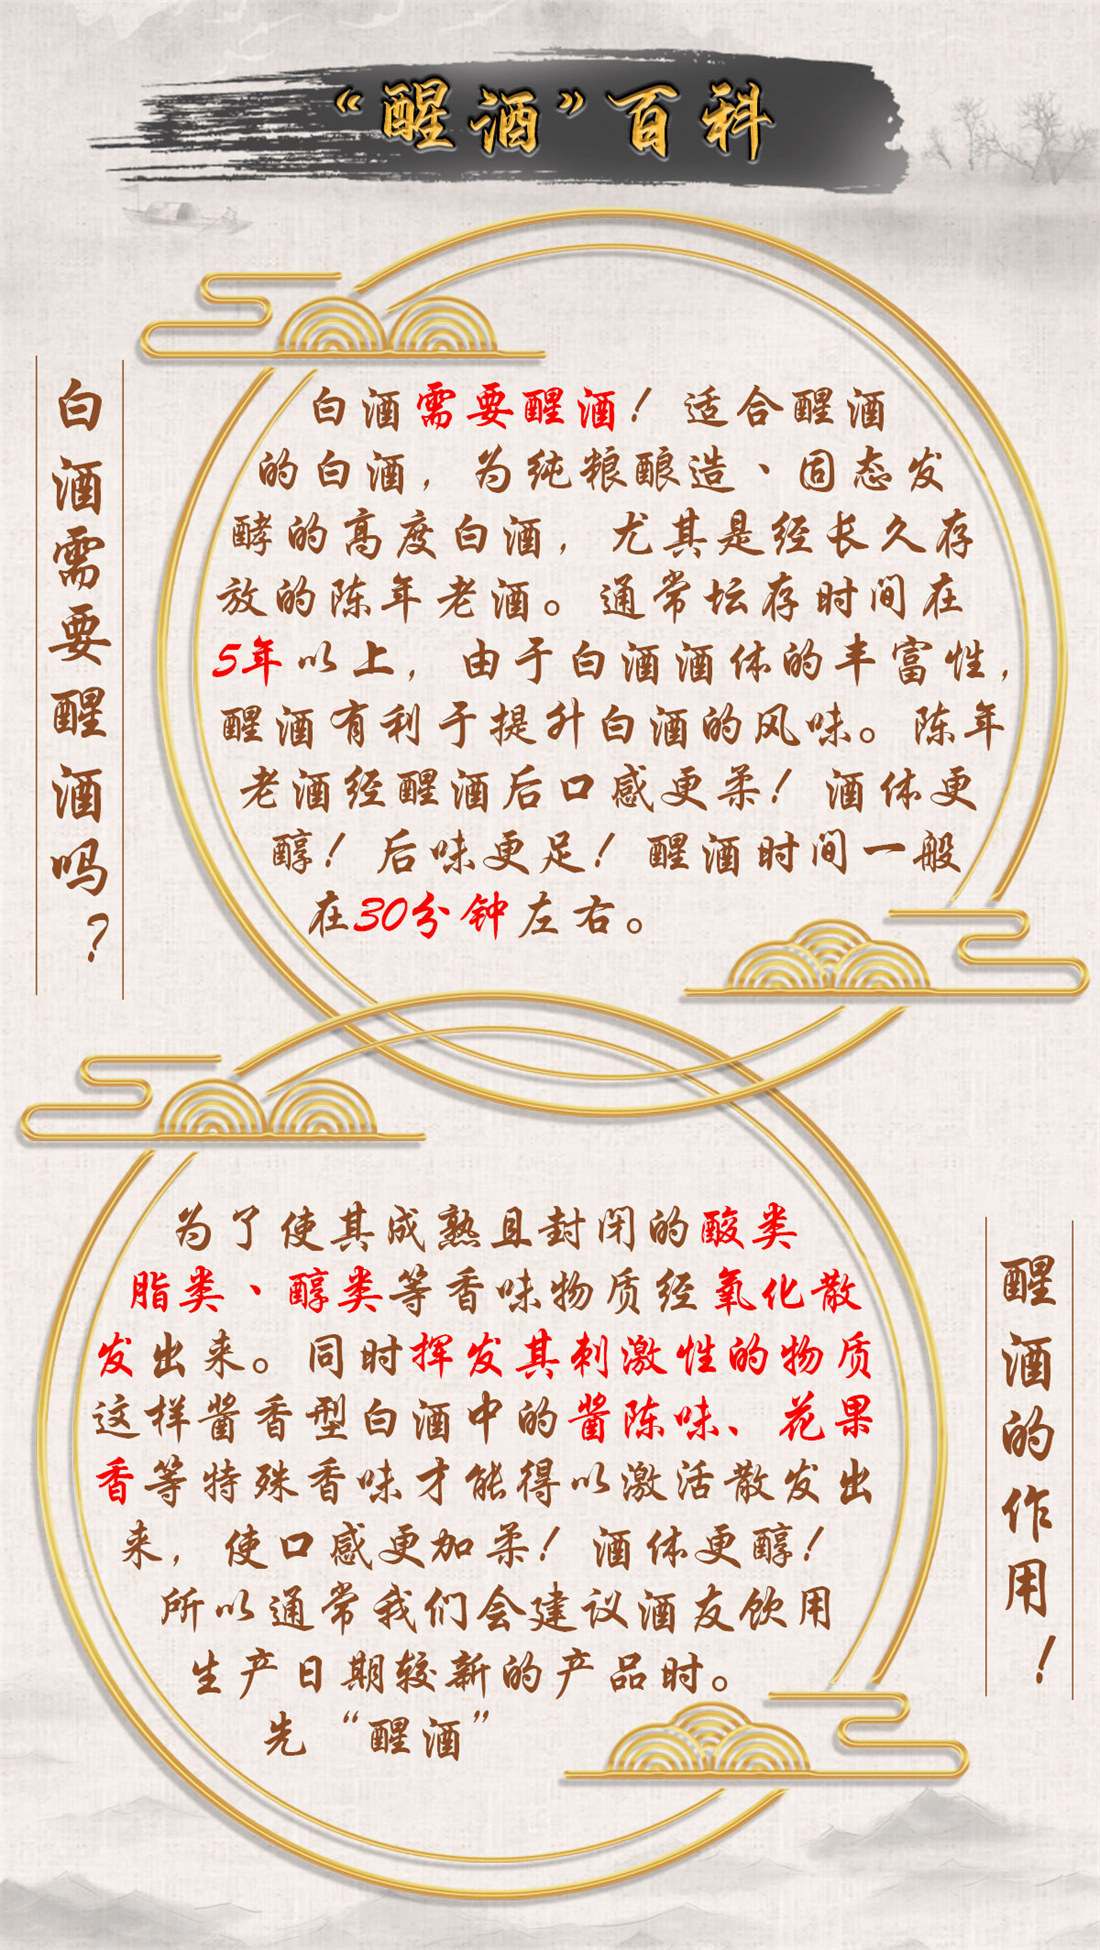 “醒酒”百科
白酒需要醒酒吗？
白酒需要醒酒！适合醒酒
的白酒，为纯粮酿造、固态发
酵的高度白酒，尤其是经长久存
放的陈年老酒。通常坛存时间在
5年以上，由于白酒酒体的丰富性，
醒酒有利于提升白酒的风味。陈年
老酒经醒酒后口感更柔！酒体更
醇！后味更足！醒酒时间一般
在30分钟左右。
醒酒的作用！
为了使其成熟且封闭的酸类
脂类、醇类等香味物质经氧化散
发出来。同时挥发其刺激性的物质
这样酱香型白酒中的酱陈味、花果
香等特殊香味才能得以激活散发出
来，使口感更加柔！酒体更醇！
所以通常我们会建议酒友饮用
生产日期较新的产品时。
先“醒酒”